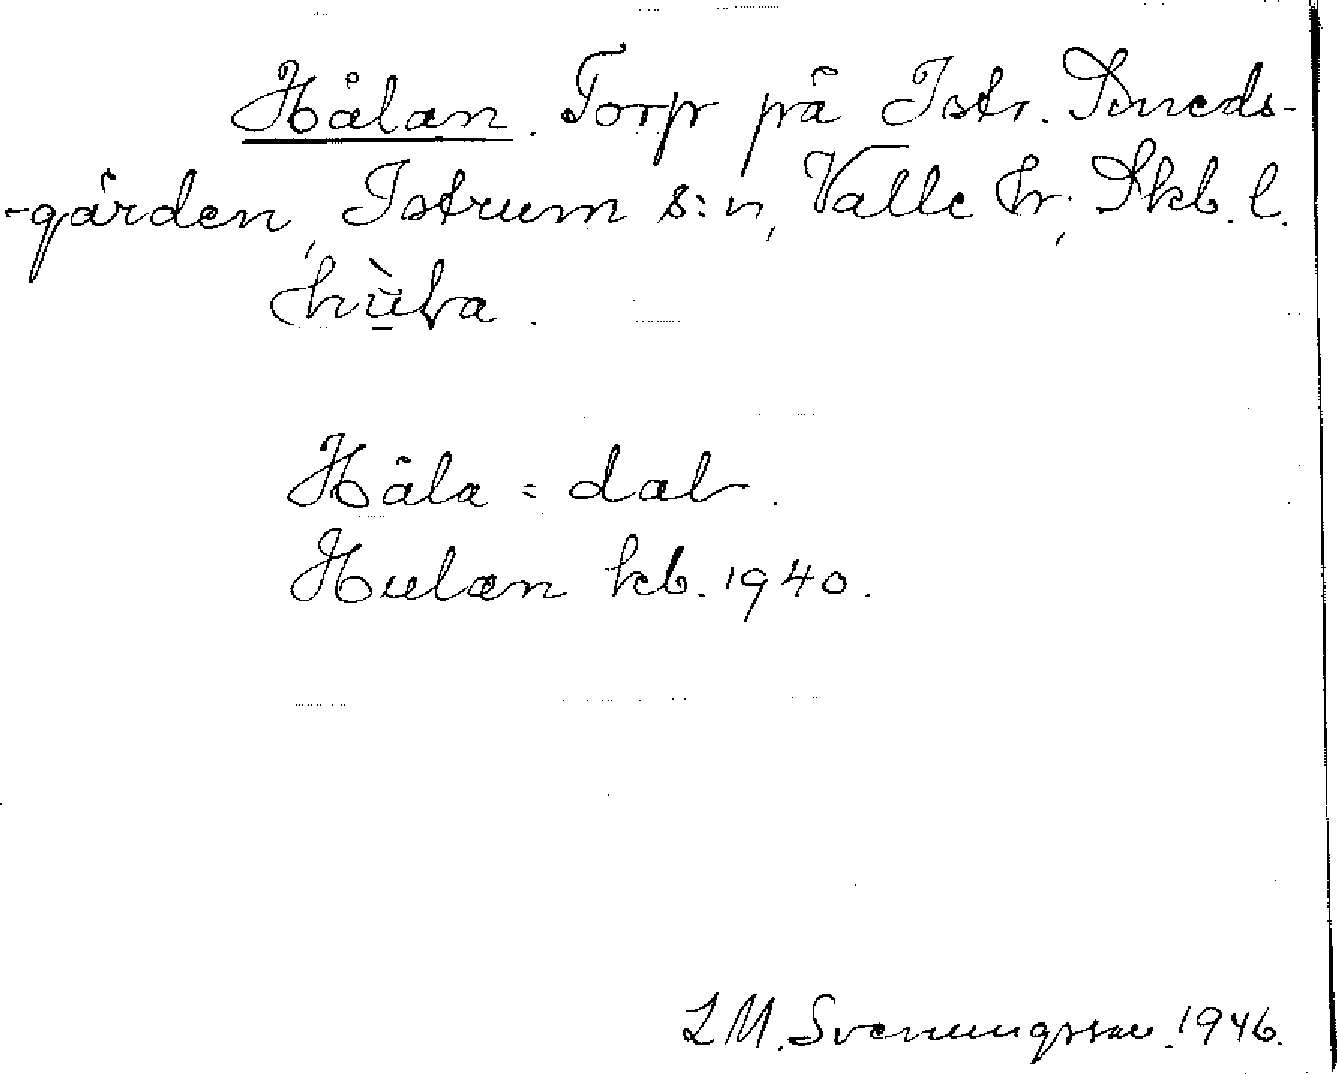 Hålan. Torp på Istr. Smeds-
-gården, Istrum s:n, Valle hr, Skb. l.
Håla = dal.
Hulan kb. 1940.
L M. Svenungsson. 1946.